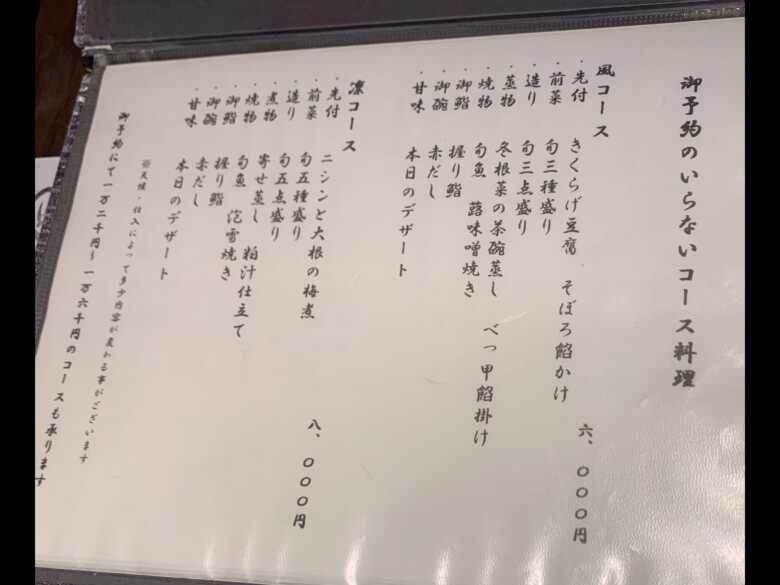 御予約のいらないコース料理
風コース
・先付 きくらげ豆腐 そぼろ餡かけ 六、〇〇〇円
・前菜 旬三種盛り
・造り 旬三点盛り
・蒸物 冬根菜の茶碗蒸し べっ甲餡掛け
・焼物 旬魚 蕗味噌焼き
・御鮨 握り鮨
・御碗 赤だし
・甘味 本日のデザート
凛コース
・先付 ニシンと大根の梅煮 八、〇〇〇円
・前菜 旬五種盛り
・造り 旬五点盛り
・煮物 寄せ蒸し 粕汁仕立て
・焼物 旬魚 泡雪焼き
・御鮨 握り鮨
・御碗 赤だし
・甘味 本日のデザート
※天候・仕入によって多少内容が変わる事がございます
御予約にて一万二千円～一万六千円のコースも承ります